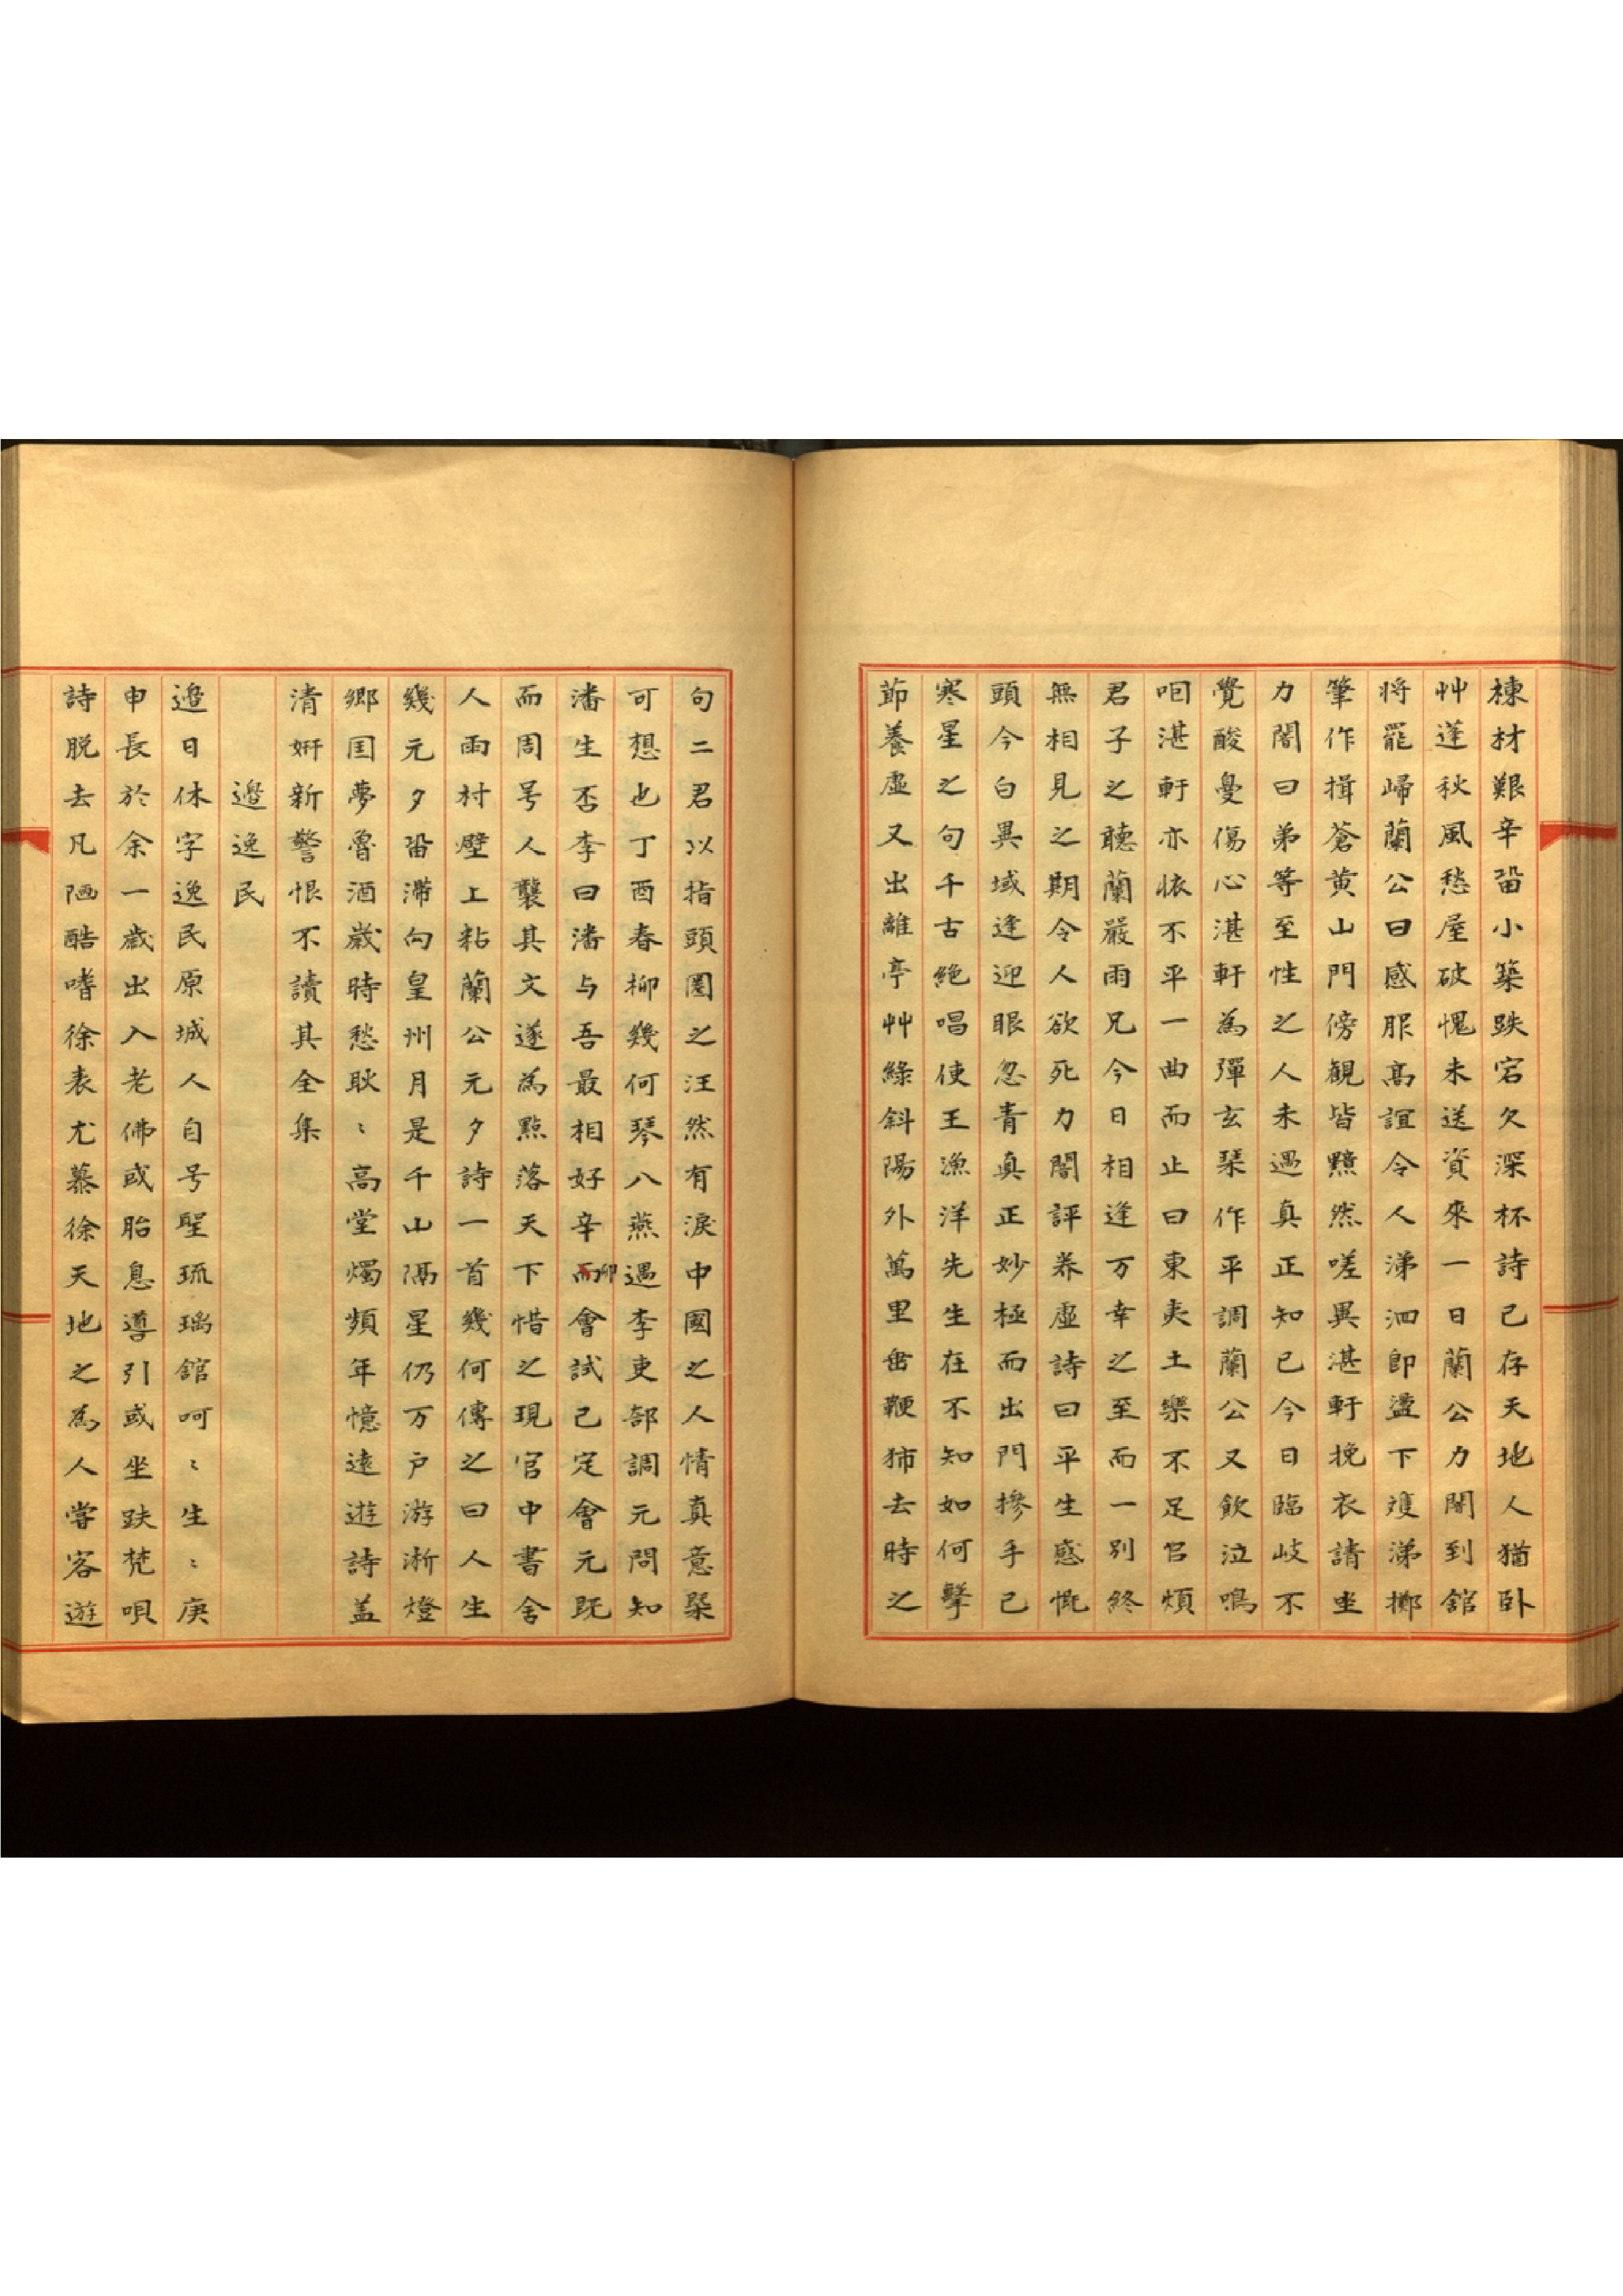 棟材艱辛畱小築跌宕久深杯詩已存天地人猶臥
艸蓬秋風愁屋破愧未送資來一日蘭公力闇到舘
將罷歸蘭公曰感服高誼令人涕泗卽盪下㞮涕擲
筆作揖蒼黃山門傍觀皆黯然嗟異湛軒挽衣請坐
力闇曰弟等至性之人未遇真正知己今日臨岐不
覺酸㬅傷心湛軒為彈玄琹作平調蘭公又飮泣嗚
咽湛軒亦悵不平一曲而止曰東夷土樂不足㠯煩
君子之聽蘭嚴雨兄今日相逢万幸之至而一別終
無相見之期令人欲死力闇評养虛詩曰平生感慨
頭今白異域逢迎眼忽青真正妙極而出門摻手已
寒星之句千古絶唱使王漁洋先生在不知如何擊
節養虛又出離亭艸綠斜陽外萬里垂鞭𤜶去時之
句二君以指頭圏之汪然有淚中國之人情真意槩
可想也丁酉春柳幾何琴八燕遇李吏部調元問知
潘生否李曰潘与吾最相好辛卯會試已定會元旣
而周号人襲其文遂為㸃落天下惜之現官中書舍
人雨村壁上粘蘭公元夕詩一首幾何傳之曰人生
幾元夕畱滯向皇州月是千山隔星仍万戶游淅燈
鄉国夢魯酒歲時愁耿〻高堂燭頻年憶遠遊詩盖
清姸新警恨不讀其全集
邉逸民
邉日休字逸民原城人自号聖琉璃舘呵〻生〻庚
申長於余一歲出入老佛或胎息導引或坐趺梵唄
詩脫去凡陋酷嗜徐袁尤慕徐天地之為人嘗客遊